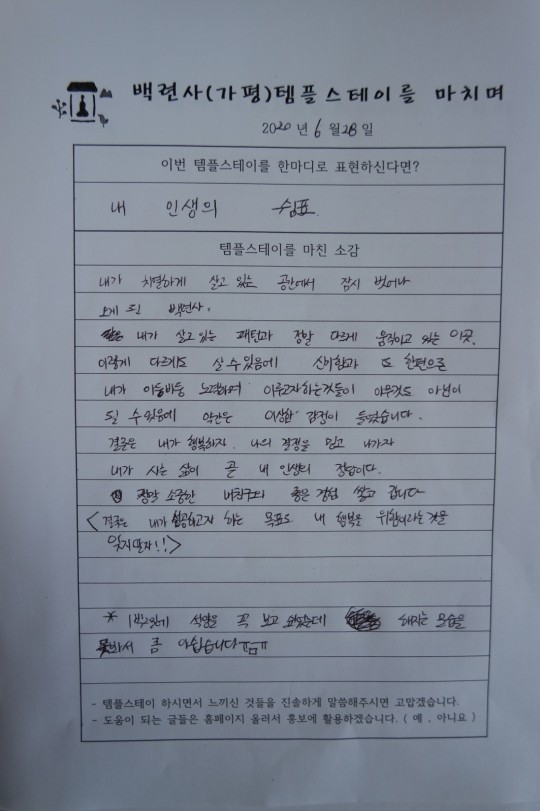 백련사(가평)템플스테이를 마치며
2020 년 6 월 28 일
이번 템플스테이를 한마디로 표현하신다면?
내 인생의 쉼표.
템플스테이를 마친 소감
내가 치열하게 살고 있는 공간에서 잠시 벗어나
오게 된 백련사.
내가 살고 있는 패턴과 정말 다르게 움직이고 있는 이곳.
이렇게 다르게도 살 수 있음에 신기함과 또 한편으론
내가 아등바등 노력하여 이루고자하는것들이 아무것도 아님이
될 수 있음에 약간은 이상한 감정이 들었습니다.
결론은 내가 행복하자. 나의 결정을 믿고 나가자
내가 사는 삶이 곧 내 인생의 정답이다.
정말 소중한 내친구와 좋은 경험 쌓고 갑니다
<결국은 내가 성공하고자 하는 목표도 내 행복을 위함이라는것을
잊지말자!!>
* 석양을 꼭 보고 싶었는데 해지는 모습을
못봐서 좀 아쉽습니다ㅠㅁㅠ
- 템플스테이 하시면서 느끼신 것들을 진솔하게 말씀해주시면 고맙겠습니다.
- 도움이 되는 글들은 홈페이지 올려서 홍보에 활용하겠습니다. ( 예 , 아니요 )